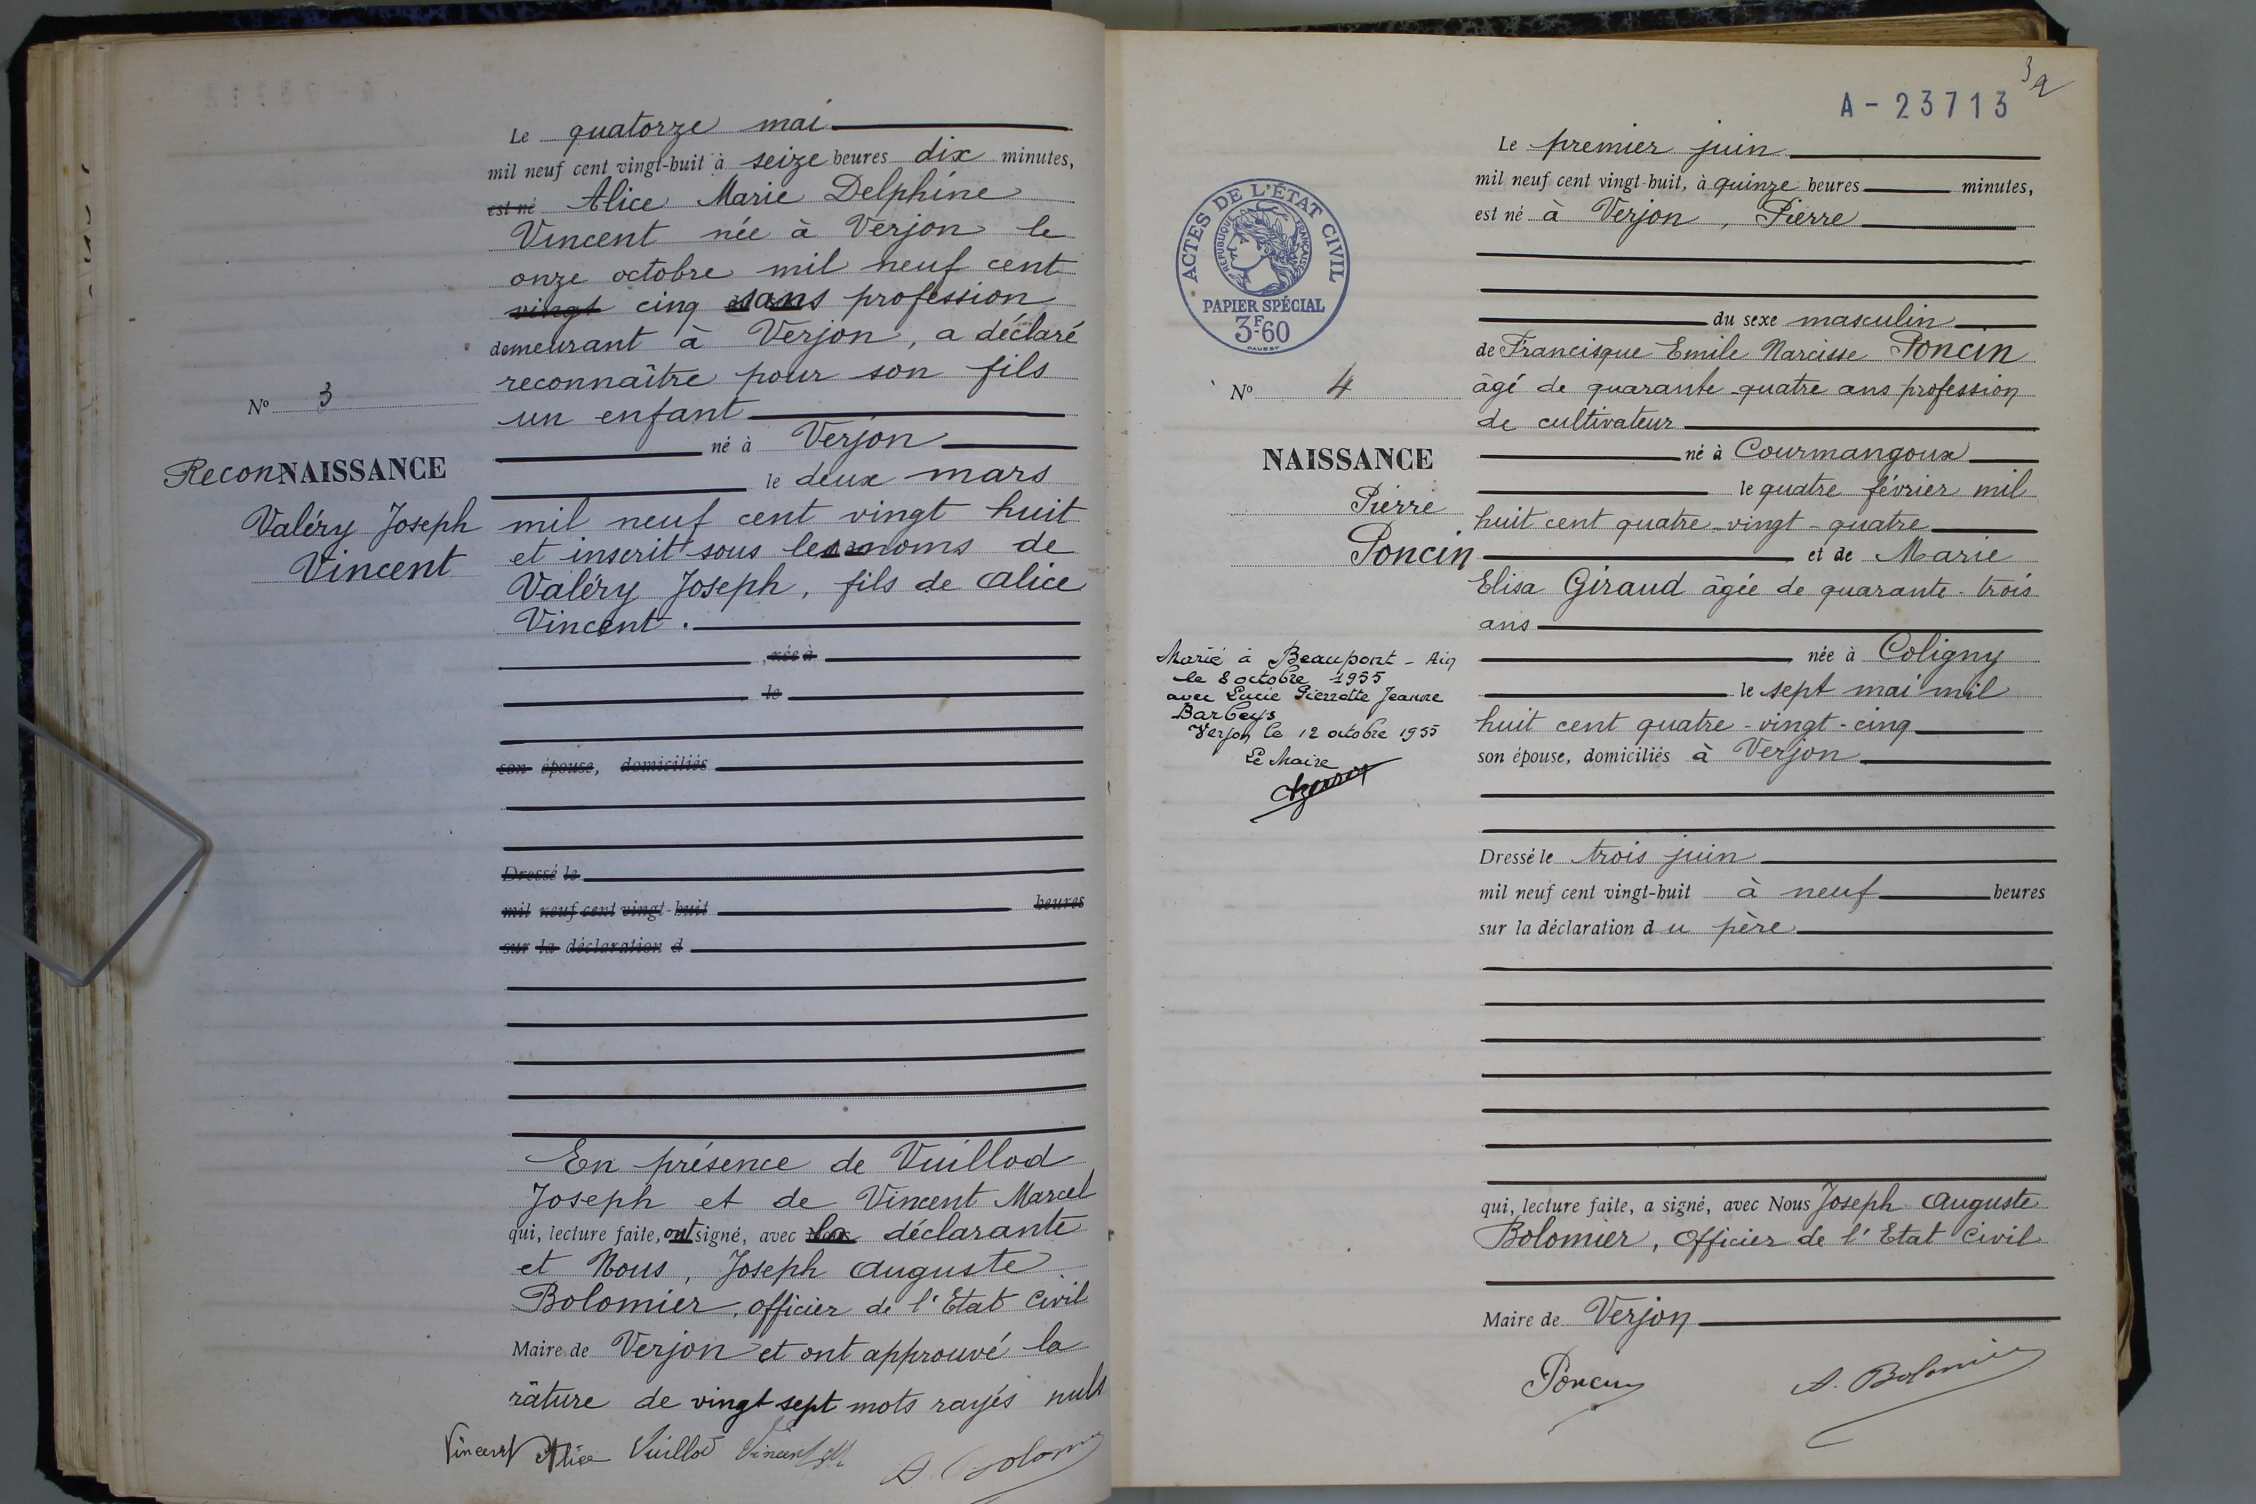 Le quatorze mai
mil neuf cent vingt-huit à seize heures dix minutes,
est né Alice Marie Delphine
Vincent née à Verjon le
onze octobre mil neuf cent
vingt cinq sans profession
demeurant à Verjon, a déclaré
reconnaître pour son fils
un enfant
né à Verjon
le deux mars
mil neuf cent vingt huit
et inscrit sous les noms de
Valéry Joseph, fils de Alice
Vincent.
née à
le
son épouse, domiciliés
Dressé le
mil neuf cent vingt-huit heures
sur la déclaration d
En présence de Vuillod
Joseph et de Vincent Marcel
qui, lecture faite, ont signé, avec la déclarante
et Nous, Joseph Auguste
Bolomier, officier de l'Etat Civil
Maire de Verjon et ont approuvé la
râture de vingt sept mots rayés nuls
Vincent Alice Vuillod Vincent M. A. Bolomier
N° 3
ReconNAISSANCE
Valéry Joseph
Vincent
A - 23713
Le premier juin
mil neuf cent vingt-huit, à quinze heures minutes,
est né à Verjon, Pierre
du sexe masculin
de Francisque Emile Narcisse Poncin
âgé de quarante-quatre ans profession
de cultivateur
né à Courmangoux
le quatre février mil
huit cent quatre-vingt-quatre
et de Marie
Elisa Giraud âgée de quarante-trois
ans
née à Coligny
le sept mai mil
huit cent quatre-vingt-cinq
son épouse, domiciliés à Verjon
Dressé le trois juin
mil neuf cent vingt-huit à neuf heures
sur la déclaration du père
qui, lecture faite, a signé, avec Nous Joseph Auguste
Bolomier, Officier de l'Etat Civil
Maire de Verjon
Poncin A. Bolomier
ACTES DE L'ÉTAT CIVIL
RÉPUBLIQUE FRANÇAISE
PAPIER SPÉCIAL
3F60
N° 4
NAISSANCE
Pierre
Poncin
Marié à Beaupont - Ain
le 8 octobre 1955
avec Lucie Pierrette Jeanne
Verjon le 12 octobre 1955
Le Maire